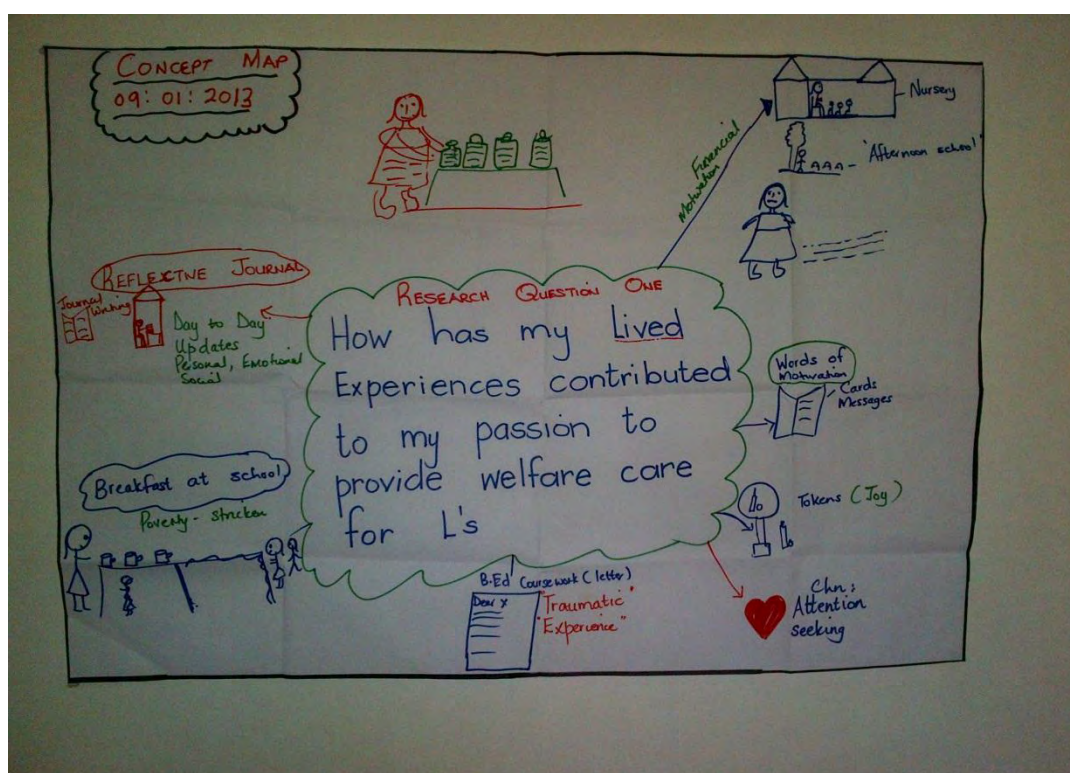 CONCEPT MAP
09:01:2013
Nursery
'Afternoon school'
Financial
Motivation
REFLECTIVE JOURNAL
Journal
Writing
Day to Day
Updates
Personal, Emotional
Social
RESEARCH QUESTION ONE
How has my Lived
Experiences contributed
to my passion to
provide welfare care
for L's
Words of
Motivation
Cards
Messages
Breakfast at school
Poverty - stricken
Tokens (Joy)
B.Ed Coursework (letter)
Dear X
"Traumatic"
"Experience"
Chn:
Attention
seeking